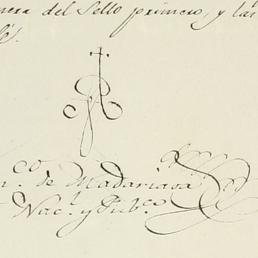 nera del Sello primero, y las
co
n. de Madariaga
Nac.l y Pub.co